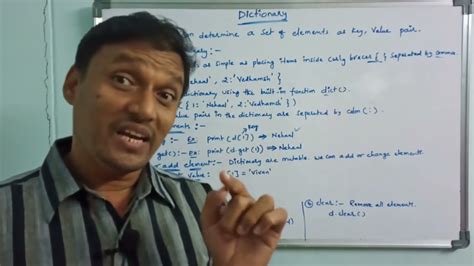 Dictionary
n determine a set of elements as key, value pair.
nary:-
is as simple as placing items inside Curly braces { } separated by comma.
'Nehaal', 2:'Vedhamsh' }
dictionary using the built-in function dict().
({ 1: 'Nehaal', 2:'Vedhamsh' })
value pairs in the dictionary are separated by colon (:)
ements :-
key
:- Ex: print (d[1]) → Nehaal
get():- Ex: print (d.get(1)) → Nehaal
or add element:- Dictionary are mutable. we can add or change elements
value: [1] = 'Vivan'
④ clear:- Remove all element.
d.clear()